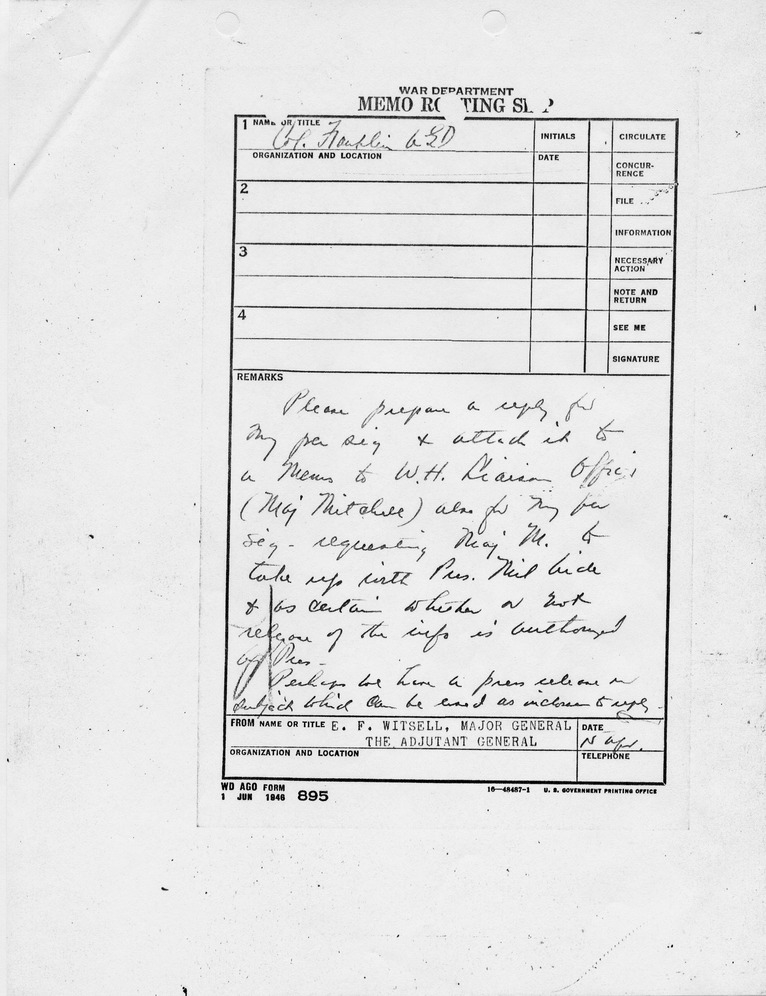 WAR DEPARTMENT
MEMO ROUTING SLIP
1 NAME OR TITLE
Col. Franklin AGD
INITIALS
CIRCULATE
ORGANIZATION AND LOCATION
DATE
CONCUR-
RENCE
2
FILE
INFORMATION
3
NECESSARY
ACTION
NOTE AND
RETURN
4
SEE ME
SIGNATURE
REMARKS
Please prepare a reply for
my per sig & attach it to
a Memo to W.H. Liaison Office
(Maj Mitchell) also for my per
sig - requesting Maj M. to
take up with Pres. Mil Aide
& ascertain whether or not
release of the info is authorized
by Pres-
Perhaps we have a press release on
subject which can be used as inclosure to reply.
FROM NAME OR TITLE E. F. WITSELL, MAJOR GENERAL
THE ADJUTANT GENERAL
DATE
Apr.
ORGANIZATION AND LOCATION
TELEPHONE
WD AGO FORM
1 JUN 1946 895
16—48487-1 U. S. GOVERNMENT PRINTING OFFICE